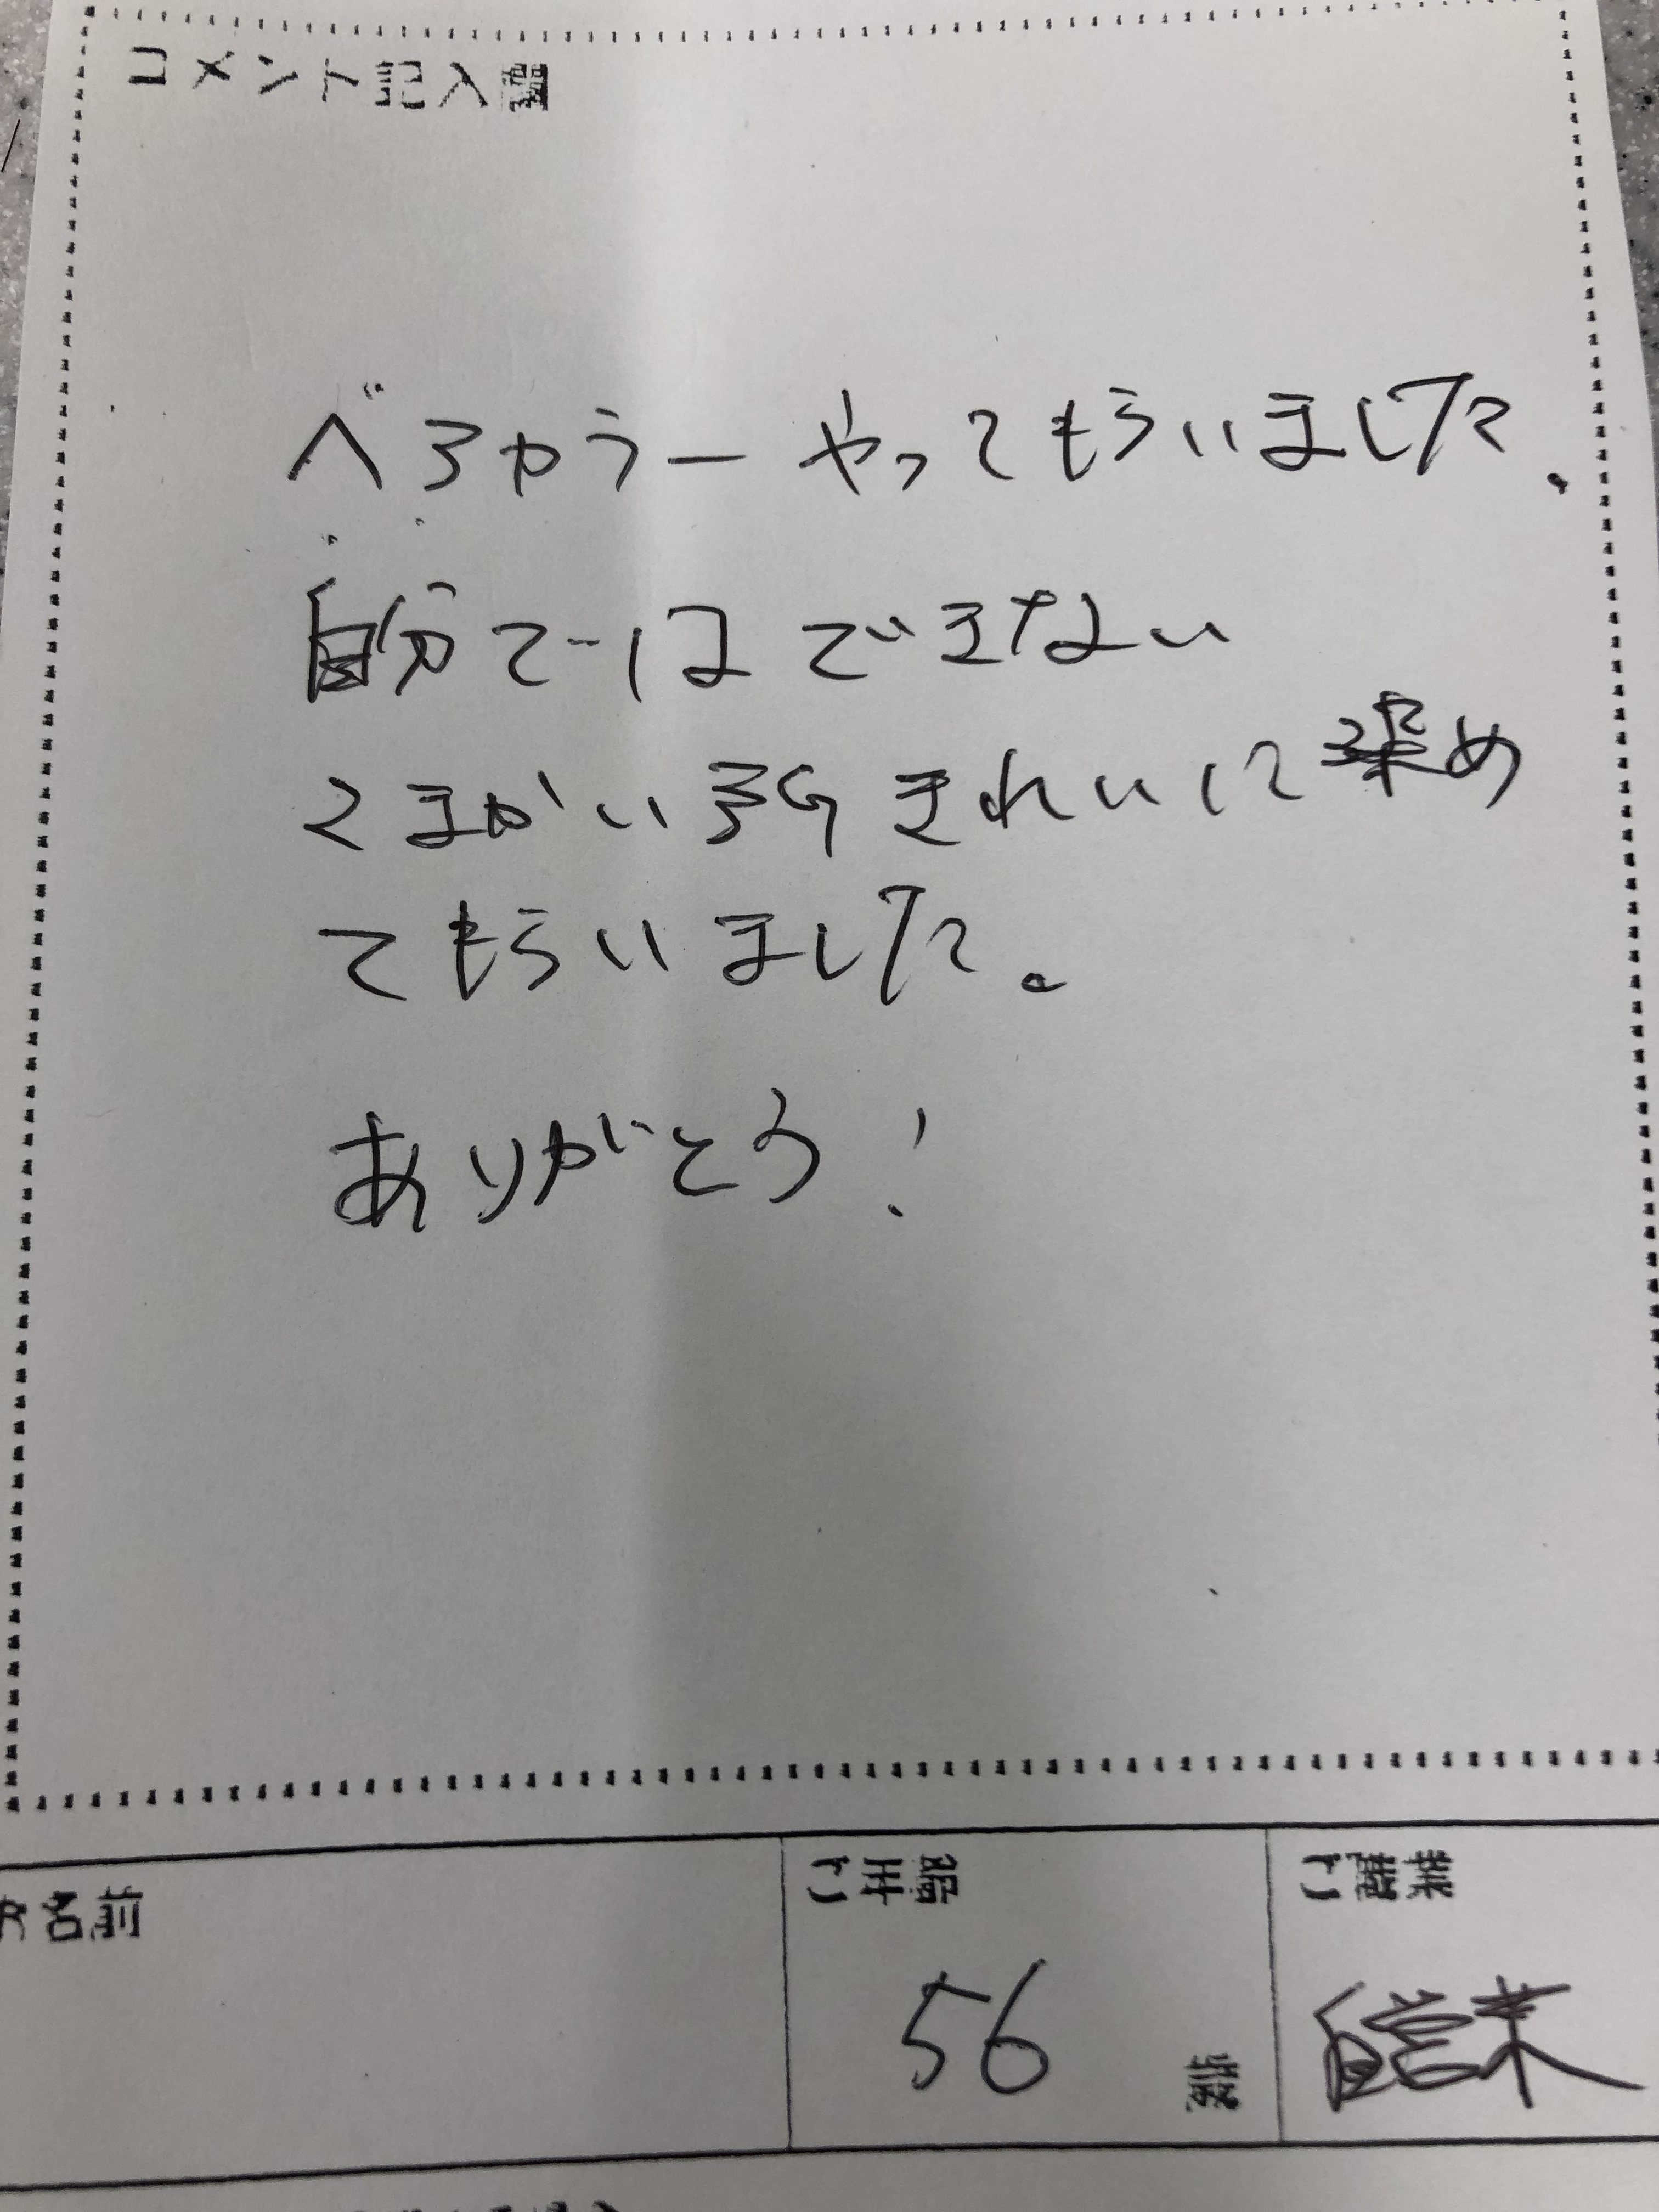 コメント記入欄
ベろカラーやってもらいました。
自分ではできない
こまかい所 きれいに染め
てもらいました。
ありがとう!
名前
ご年齢
ご職業
56
歳
自営業